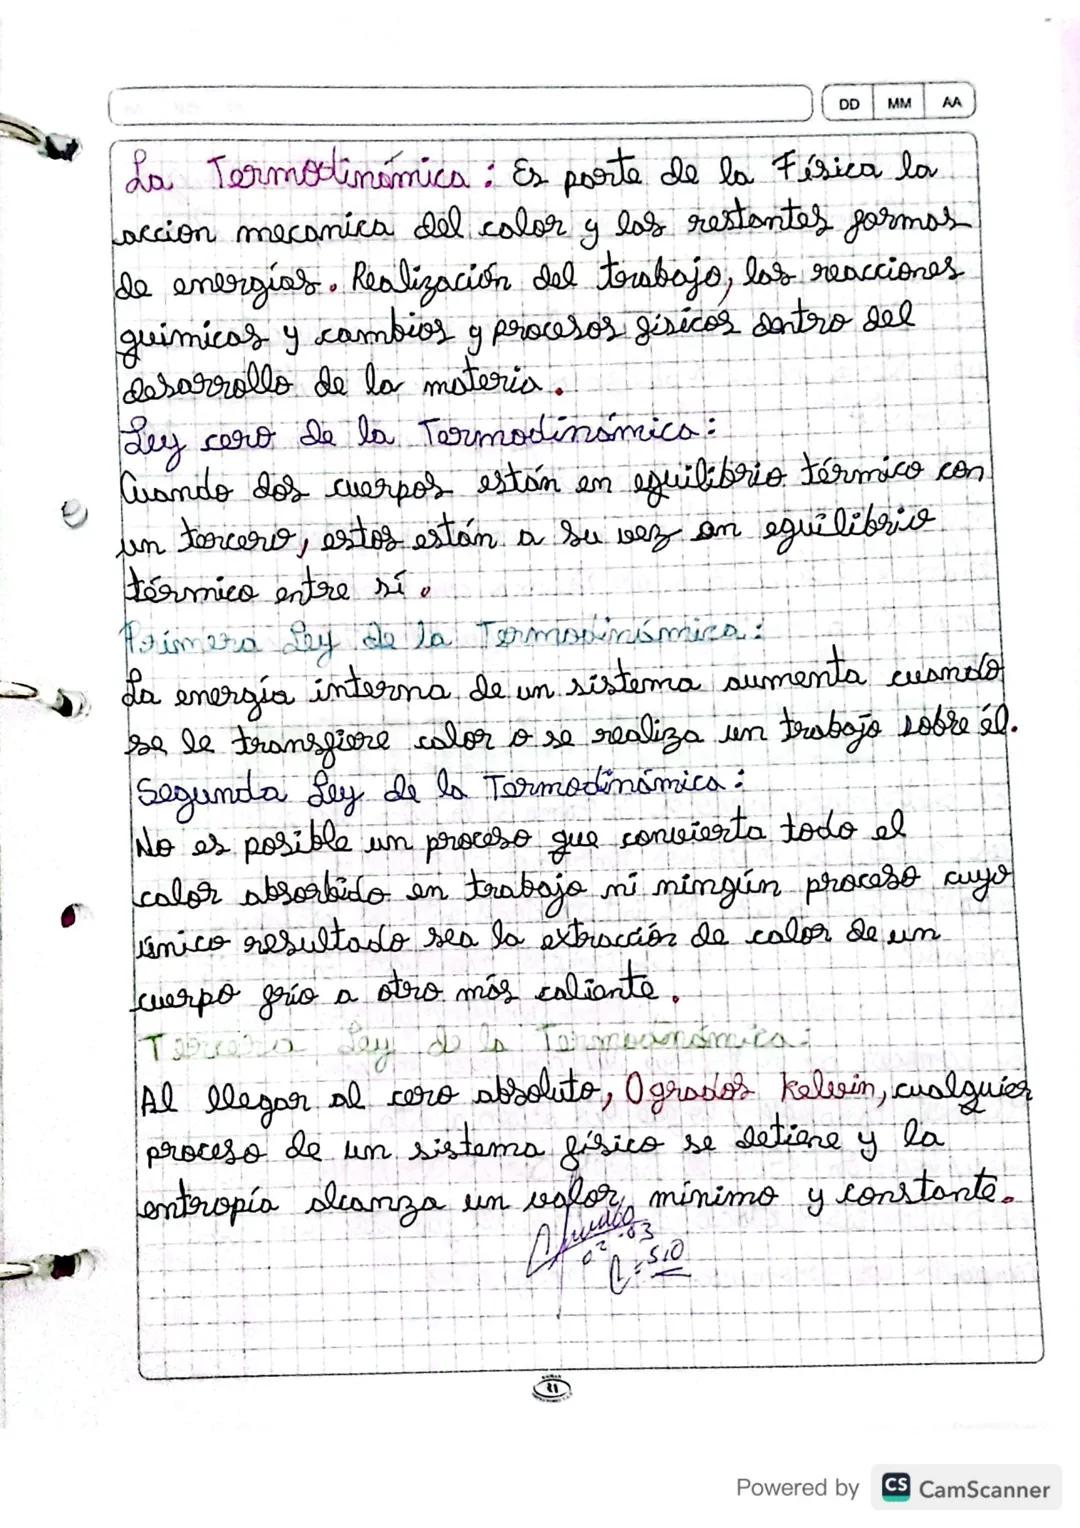 DD MM AA
La Termodinámica: Es parte de la Física la
accion mecanica del calor y las restantes formas
de energías. Realización del trabajo, las reacciones
quimicas y cambios y procesos físicos dentro del
desarrollo de la materia.
Ley cero de la Termodinámica:
Cuando dos cuerpos están en equilibrio térmico con
un tercero, estos están a su vez en equilibrio
térmico entre sí.
Primera Ley de la Termodinámica:
La energía interna de un sistema aumenta cuando
se le transfiere calor o se realiza un trabajo sobre él.
Segunda Ley de la Termodinámica:
No es posible un proceso que convierta todo el
calor absorbido en trabajo ni ningún proceso cuyo
único resultado sea la extracción de calor de un
cuerpo frío a otro más caliente.
Tercera Ley de la Termodinámica:
Al llegar al cero absoluto, 0 grados Kelvin, cualquier
proceso de un sistema físico se detiene y la
entropía alcanza un valor mínimo y constante.
Powered by CS CamScanner